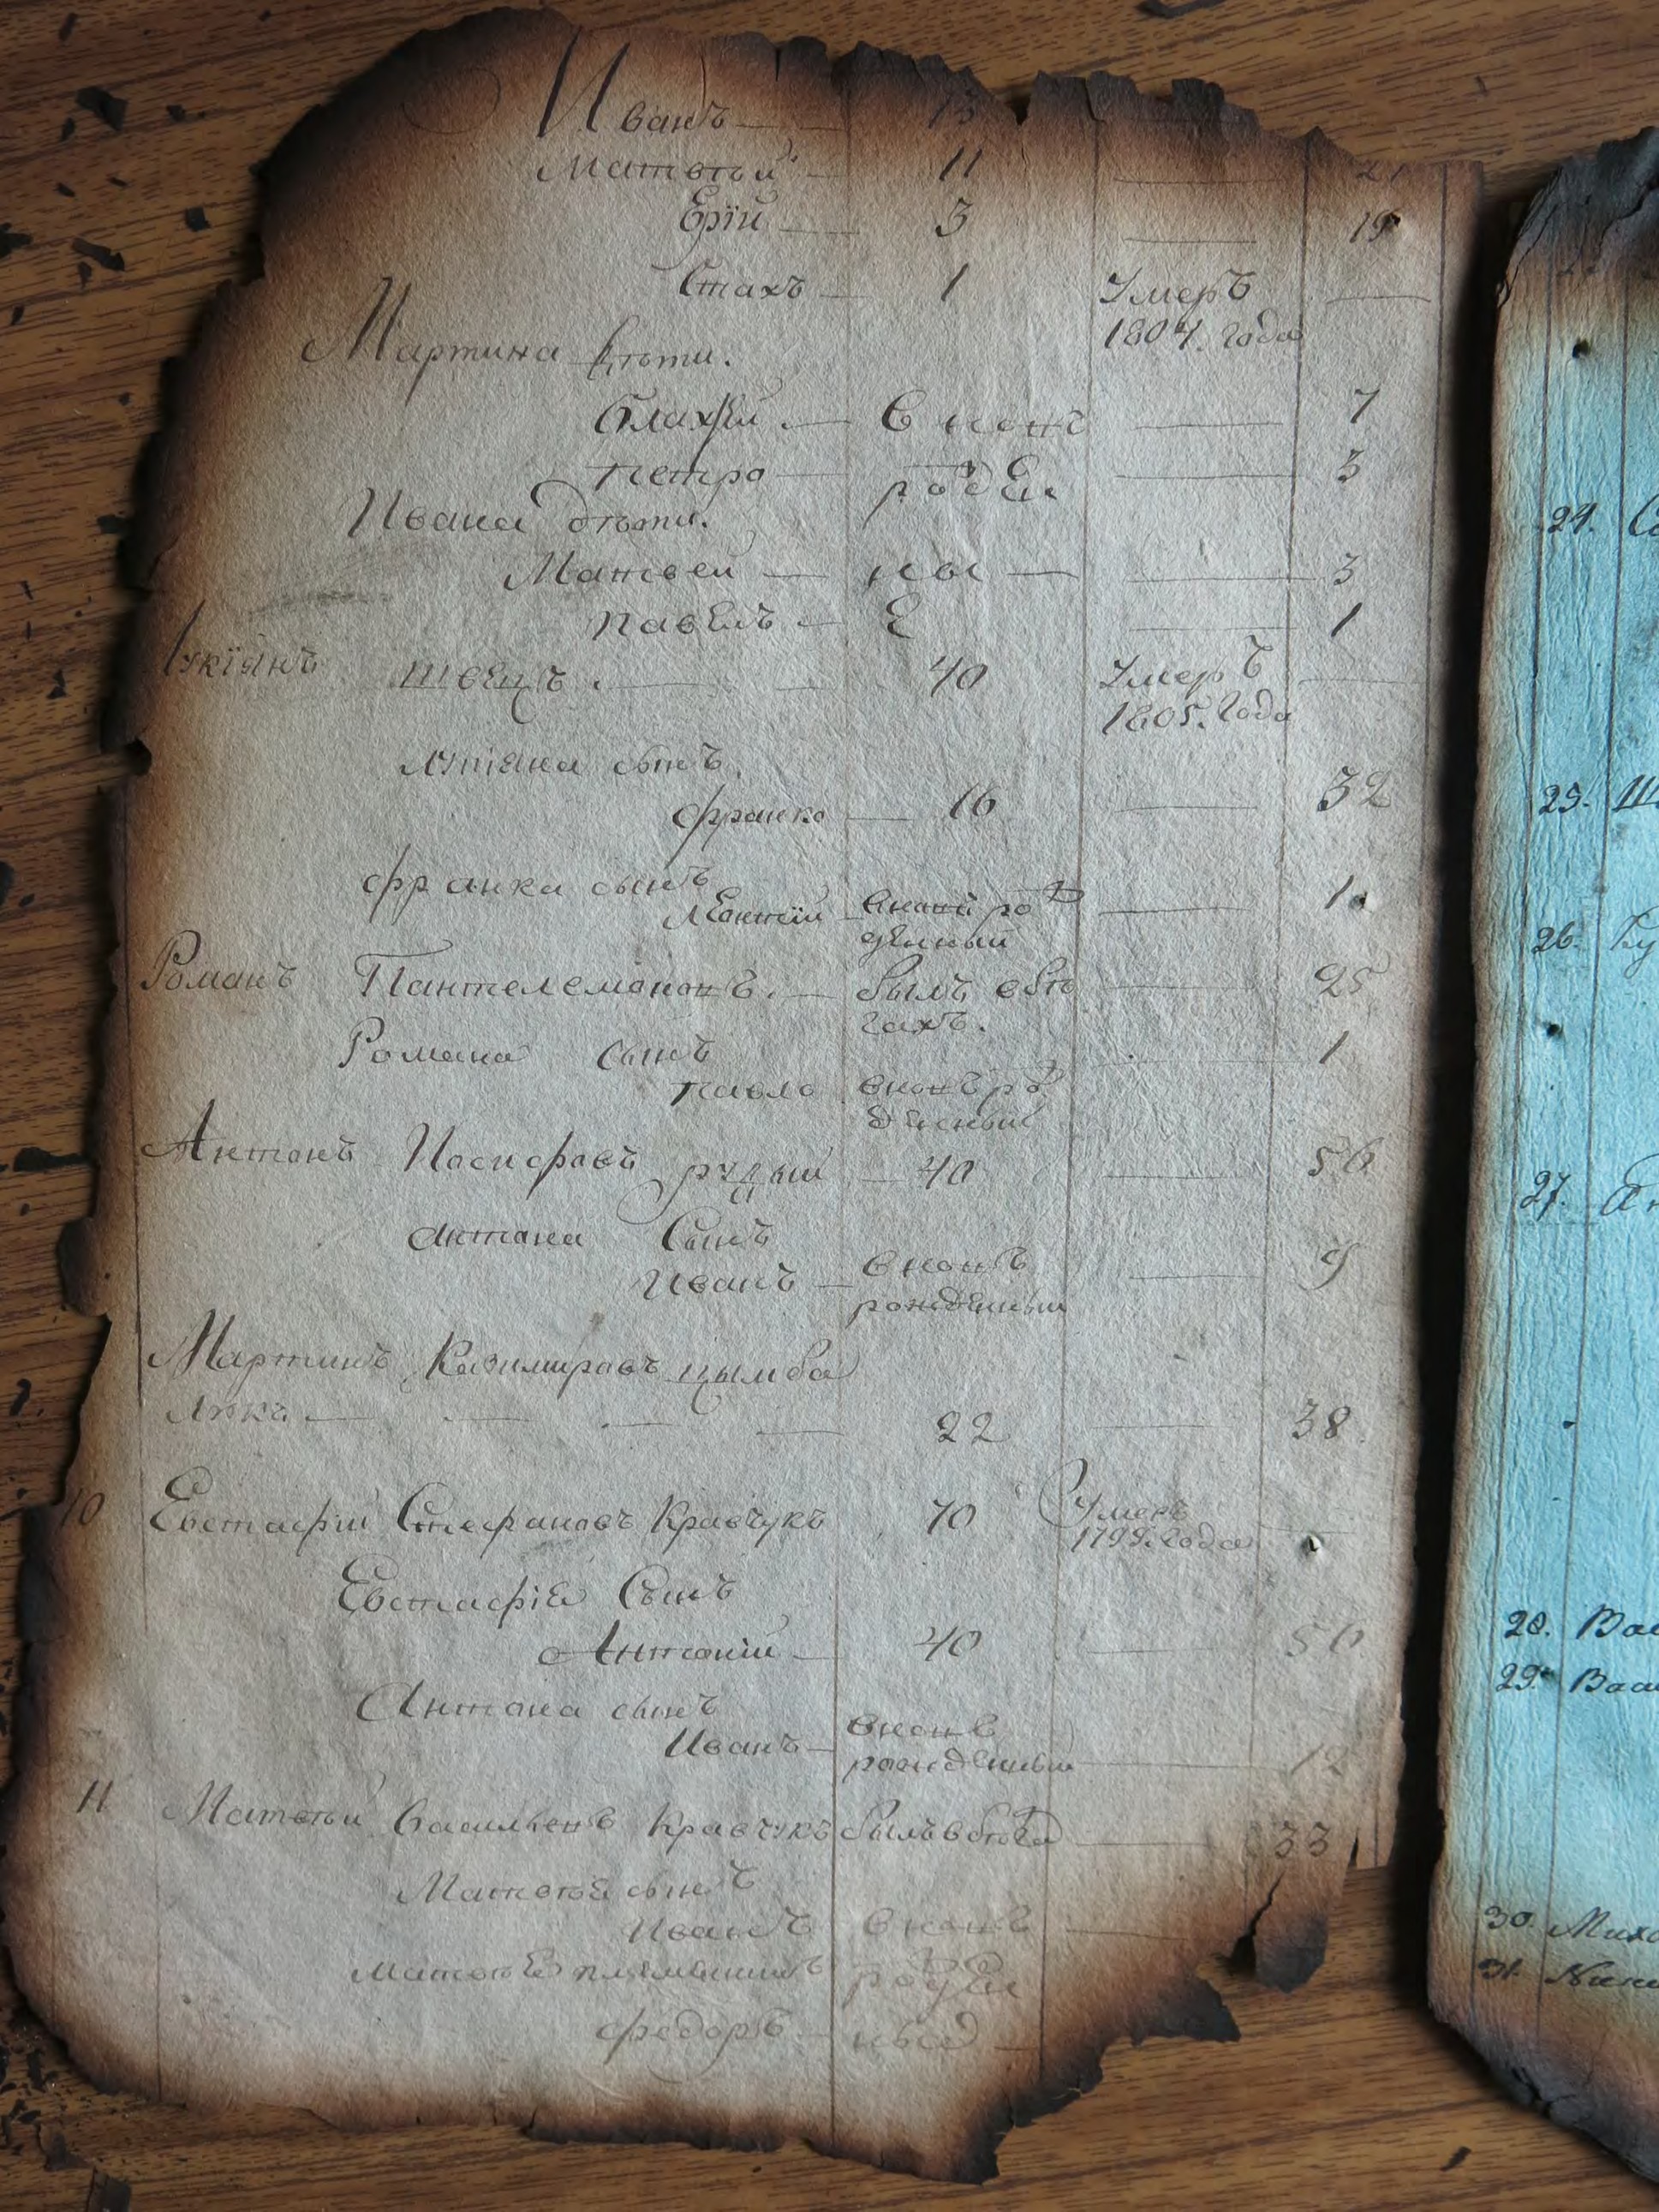 Иванъ — 13
Матвѣй — 11 — 27
Ерій — 3 — 19
Стахъ — 1 Умеръ —
1804. года
Мартина дѣти.
Блажѣй — в новѣ — 7
Петро — рожде — 3
Ивана дѣти.
Матвей — ны — — 3
Павелъ — е — 1
Лукіянъ Швецъ. — 40 Умеръ —
1805. года
Лукіяна сынъ
Франко — 16 — 32
Франка сынъ
вновѣ рож — 1
денный
Романъ Пантелемоновъ. — былъ вбѣ — 25
гахъ.
Романа сынъ — 1
Павло вновъ рож
денный
Антонъ Иосифовъ рудый — 40 — 56
Антона Сынъ
Иванъ — вновъ — 9
рожденный
Мартинъ Казимировъ цымба
люкъ — — — — 22 — 38
10 Евстафій Стефановъ Кравчукъ 70 Умеръ —
1799. года
Евстафіе Сынъ
Антоній — 40 — 56
Антона сынъ
Иванъ — вновѣ
рожденный — 12
11 Матвѣй Васильевъ Кравчукъ былъ в бѣгах — 33
Матвѣя сынъ
Иванъ вновъ —
Матвѣя племянникъ рожден
Федоръ — ные —
24.
25. Ш
26. Ку
27. Ан
28. Вас
29. Васи
30. Миха
31. Ники